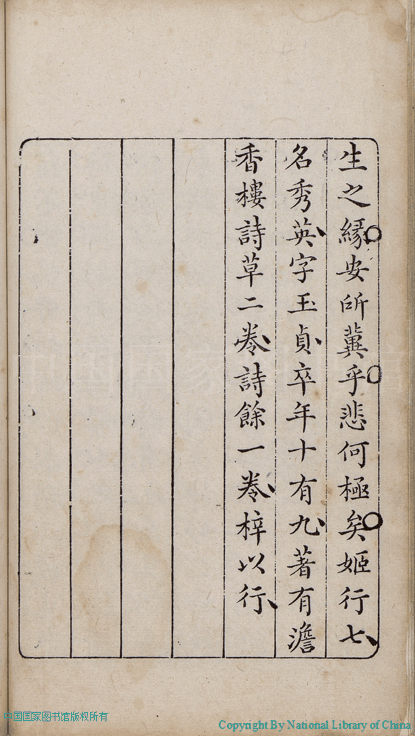 生之緣安所冀乎悲何極矣姬行七
名秀英字玉貞卒年十有九著有澹
香樓詩草二卷詩餘一卷梓以行
中国国家图书馆版权所有
Copyright By National Library of China